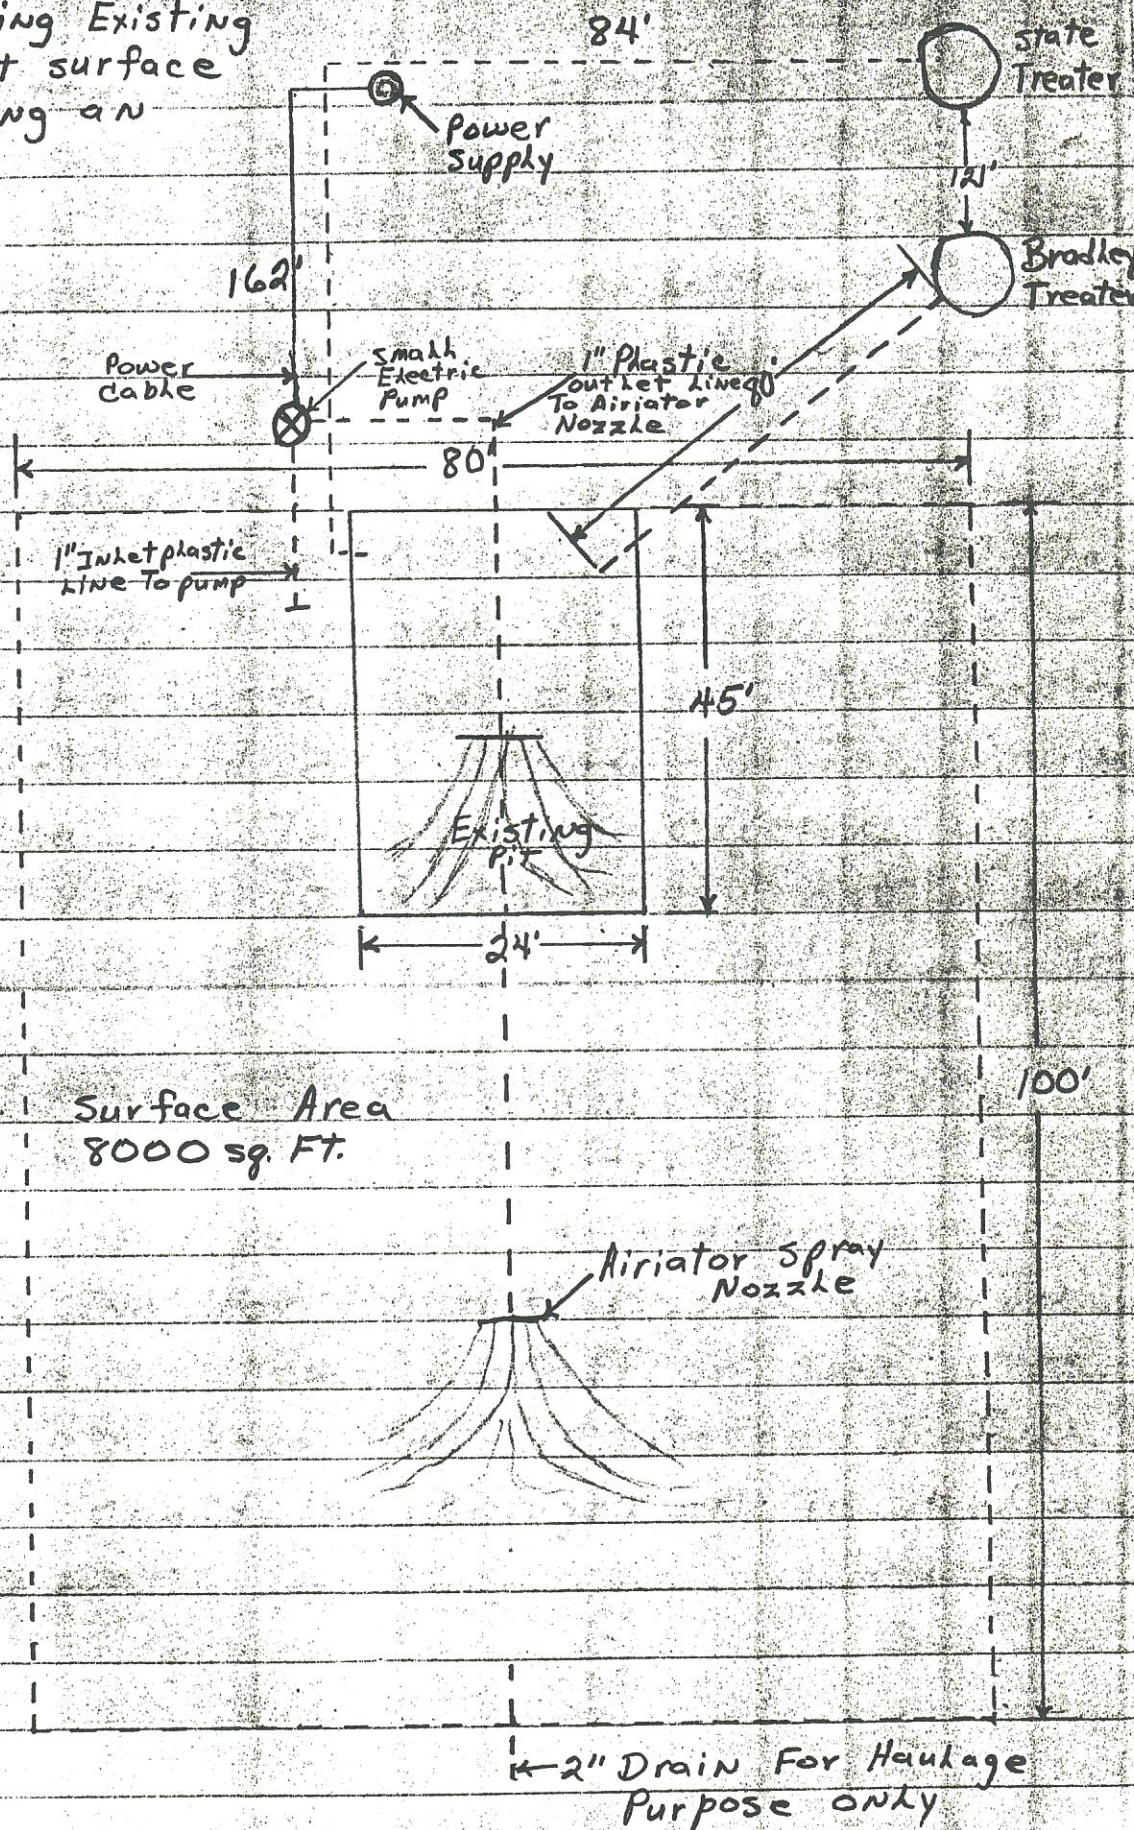 ing Existing
t surface
ng an
84'
State
Treater
Power
Supply
121'
Bradley
Treater
162'
Power
Cable
Small
Electric
Pump
1" Plastic
outlet Line
To Airiator
Nozzle
90'
80'
1" Inlet plastic
Line To pump
45'
Existing
Pit
24'
100'
Surface Area
8000 sq. Ft.
Airiator Spray
Nozzle
2" Drain For Haulage
Purpose only